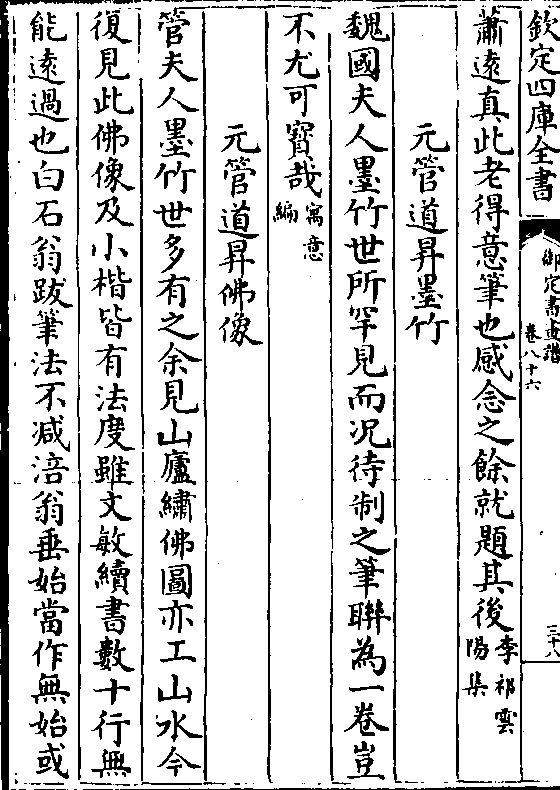 欽定四庫全書
御定書畫譜
卷八十六
三十八
蕭遠真此老得意筆也感念之餘就題其後李祁雲陽集
元管道昇墨竹
魏國夫人墨竹世所罕見而况待制之筆聯為一卷豈
不尤可寳哉寓意編
元管道昇佛像
管夫人墨竹世多有之余見山廬繡佛圖亦工山水今
復見此佛像及小楷皆有法度雖文敏續書數十行無
能遠過也白石翁跋筆法不减涪翁垂始當作無始或